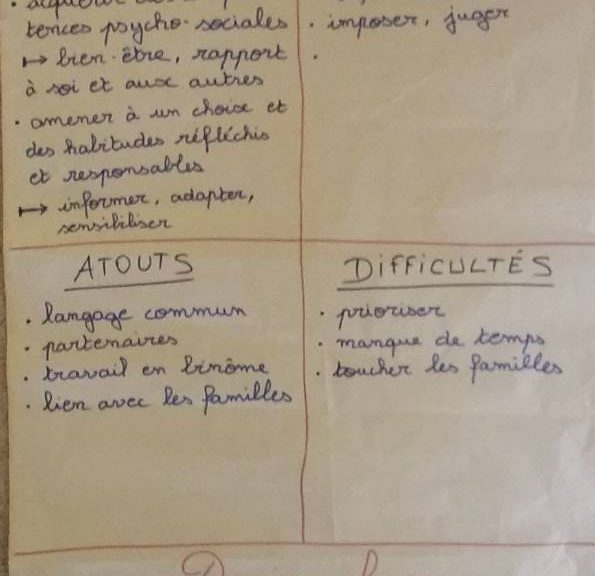 tences psycho-sociales
↦ bien-être, rapport
à soi et aux autres
• amener à un choix et
des habitudes réfléchis
et responsables
↦ informer, adapter,
sensibiliser
• imposer, juger
•
ATOUTS
• langage commun
• partenaires
• travail en binôme
• lien avec les familles
DIFFICULTÉS
• prioriser
• manque de temps
• toucher les familles